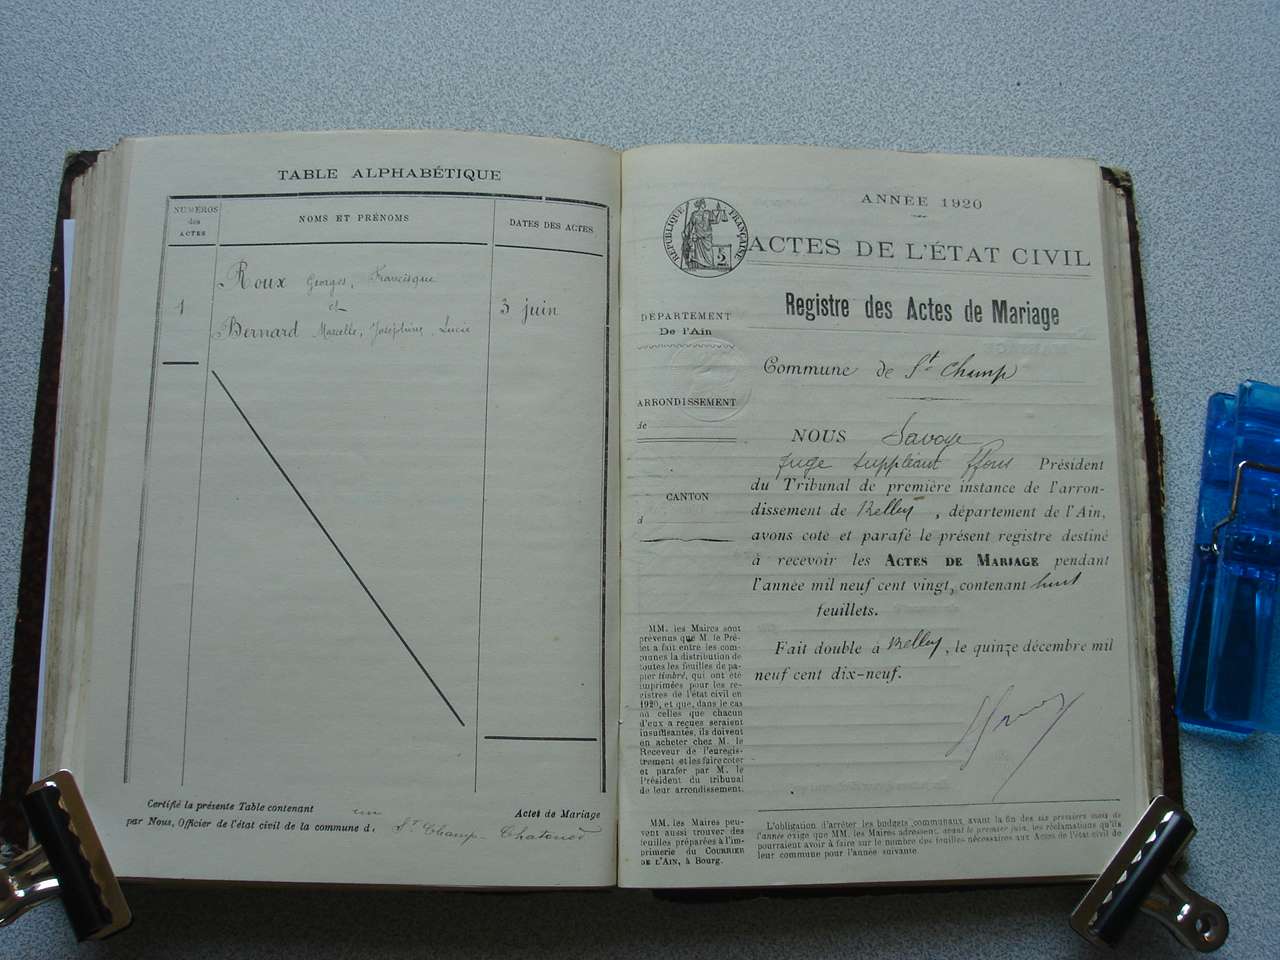 TABLE ALPHABÉTIQUE
NUMÉROS
des
ACTES
NOMS ET PRÉNOMS
DATES DES ACTES
Roux Georges, Francisque
1
et
3 juin
Bernard Marcelle, Joséphine, Lucie
Certifié la présente Table contenant un Actes de Mariage
par Nous, Officier de l'état civil de la commune d. St Champ-Chatonod
ANNÉE 1920
RÉPUBLIQUE FRANÇAISE
5
ACTES DE L'ÉTAT CIVIL
Registre des Actes de Mariage
DÉPARTEMENT
De l'Ain
ARRONDISSEMENT
de
CANTON
d
Commune de St Champ
NOUS Savoye
juge suppléant ffons Président
du Tribunal de première instance de l'arron-
dissement de Belley, département de l'Ain,
avons coté et parafé le présent registre destiné
à recevoir les ACTES DE MARIAGE pendant
l'année mil neuf cent vingt, contenant huit
feuillets.
Fait double à Belley, le quinze décembre mil
neuf cent dix-neuf.
MM. les Maires sont
prévenus que M. le Pré-
fet a fait entre les com-
munes la distribution de
toutes les feuilles de pa-
pier timbré, qui ont été
imprimées pour les re-
gistres de l'état civil en
1920, et que, dans le cas
où celles que chacun
d'eux a reçues seraient
insuffisantes, ils doivent
en acheter chez M. le
Receveur de l'enregis-
trement et les faire coter
et parafer par M. le
Président du tribunal
de leur arrondissement.
MM. les Maires peu-
vent aussi trouver des
feuilles préparées à l'im-
primerie du COURRIER
DE L'AIN, à Bourg.
L'obligation d'arrêter les budgets communaux avant la fin des six premiers mois de
l'année exige que MM. les Maires adressent, avant le premier juin, les réclamations qu'ils
pourraient avoir à faire sur le nombre des feuilles nécessaires aux Actes de l'état civil de
leur commune pour l'année suivante.